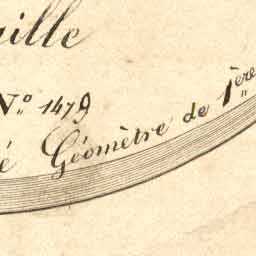 aille
N.º 1479
é Géomètre de 1.ère